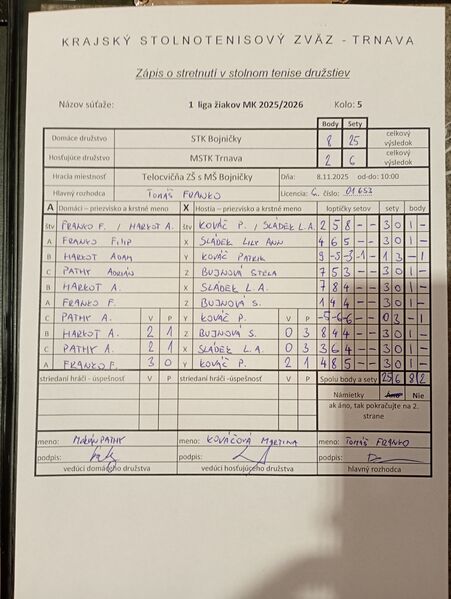 KRAJSKÝ STOLNOTENISOVÝ ZVÄZ - TRNAVA
Zápis o stretnutí v stolnom tenise družstiev
Názov súťaže: 1 liga žiakov MK 2025/2026 Kolo: 5
Body Sety
Domáce družstvo STK Bojničky 8 25 celkový výsledok
Hosťujúce družstvo MSTK Trnava 2 6 celkový výsledok
Hracia miestnosť Telocvičňa ZŠ s MŠ Bojničky Dňa: 8.11.2025 od-do: 10:00
Hlavný rozhodca TOMÁŠ FRANKO Licencia C. číslo: 01653
A Domáci – priezvisko a krstné meno X Hostia – priezvisko a krstné meno loptičky setov sety body
štv FRANKO F. / HARKOT A. štv KOVÁČ P. / SLÁDEK L.A. 2 5 8 - - 3 0 1 -
A FRANKO FILIP X SLÁDEK LILY ANN 4 6 5 - - 3 0 1 -
B HARKOT ADAM Y KOVÁČ PATRIK 9 -5 -3 -1 - 1 3 - 1
C PATHY ADRIÁN Z BUJNOVÁ STELA 7 5 3 - - 3 0 1 -
B HARKOT A. X SLÁDEK L.A. 7 8 4 - - 3 0 1 -
A FRANKO F. Z BUJNOVÁ S. 1 4 4 - - 3 0 1 -
C PATHY A. V P Y KOVÁČ P. V P -5 -6 -6 - - 0 3 - 1
B HARKOT A. 2 1 Z BUJNOVÁ S. 0 3 8 4 4 - - 3 0 1 -
C PATHY A. 2 1 X SLÁDEK L.A. 0 3 3 6 4 - - 3 0 1 -
A FRANKO F. 3 0 Y KOVÁČ P. 2 1 4 8 5 - - 3 0 1 -
striedaní hráči - úspešnosť V P striedaní hráči - úspešnosť V P Spolu body a sety 25 6 8 2
Námietky Áno Nie
ak áno, tak pokračujte na 2. strane
meno: PATHY meno: KOVÁČOVÁ MARTINA meno: TOMÁŠ FRANKO
podpis: podpis: podpis:
vedúci domáceho družstva vedúci hosťujúceho družstva hlavný rozhodca